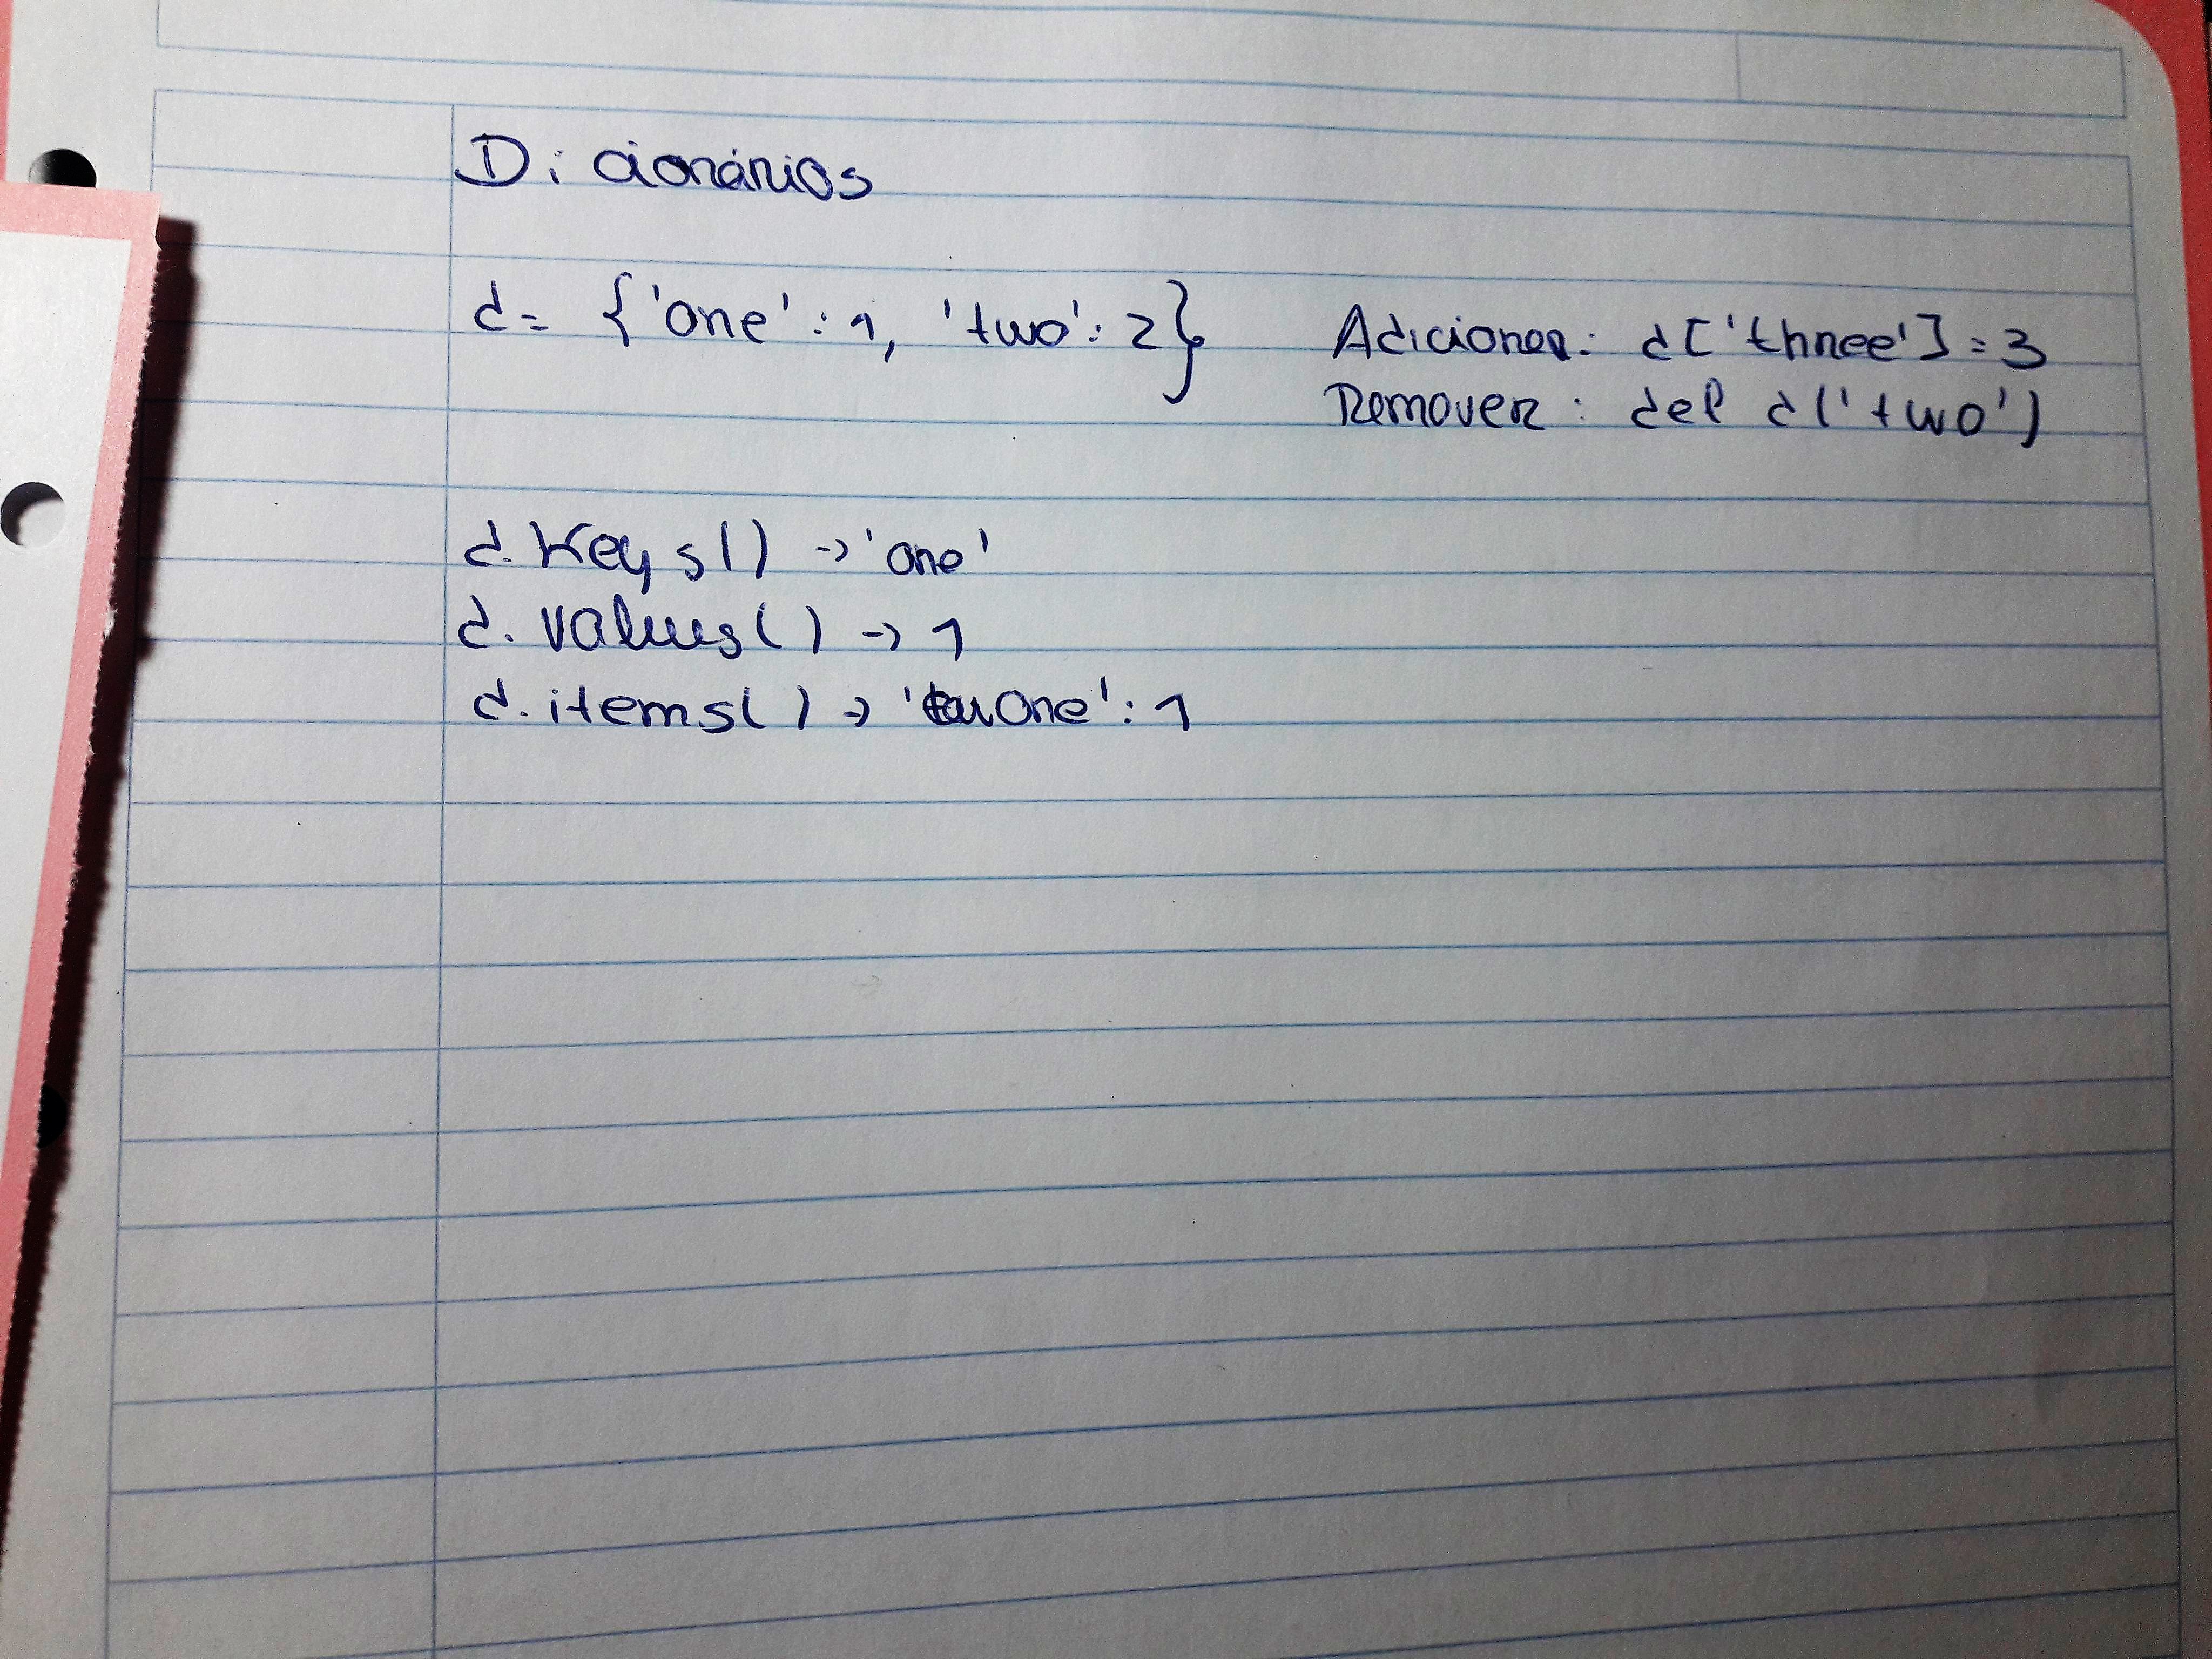 Dicionários
d = {'one' : 1, 'two' : 2}
Adicionar: d['three'] = 3
Remover : del d('two')
d.keys() -> 'one'
d.values() -> 1
d.items() -> 'one' : 1